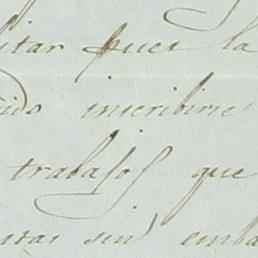 itar pues la
ido inscribirse
trabajos que
sin emba